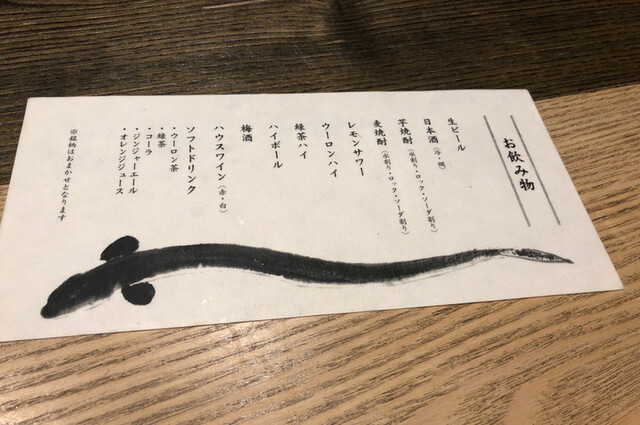 お飲み物
生ビール
日本酒（冷・燗）
芋焼酎（水割り・ロック・ソーダ割り）
麦焼酎（水割り・ロック・ソーダ割り）
レモンサワー
ウーロンハイ
緑茶ハイ
ハイボール
梅酒
ハウスワイン（赤・白）
ソフトドリンク
・ウーロン茶
・緑茶
・コーラ
・ジンジャーエール
・オレンジジュース
※銘柄はおまかせとなります